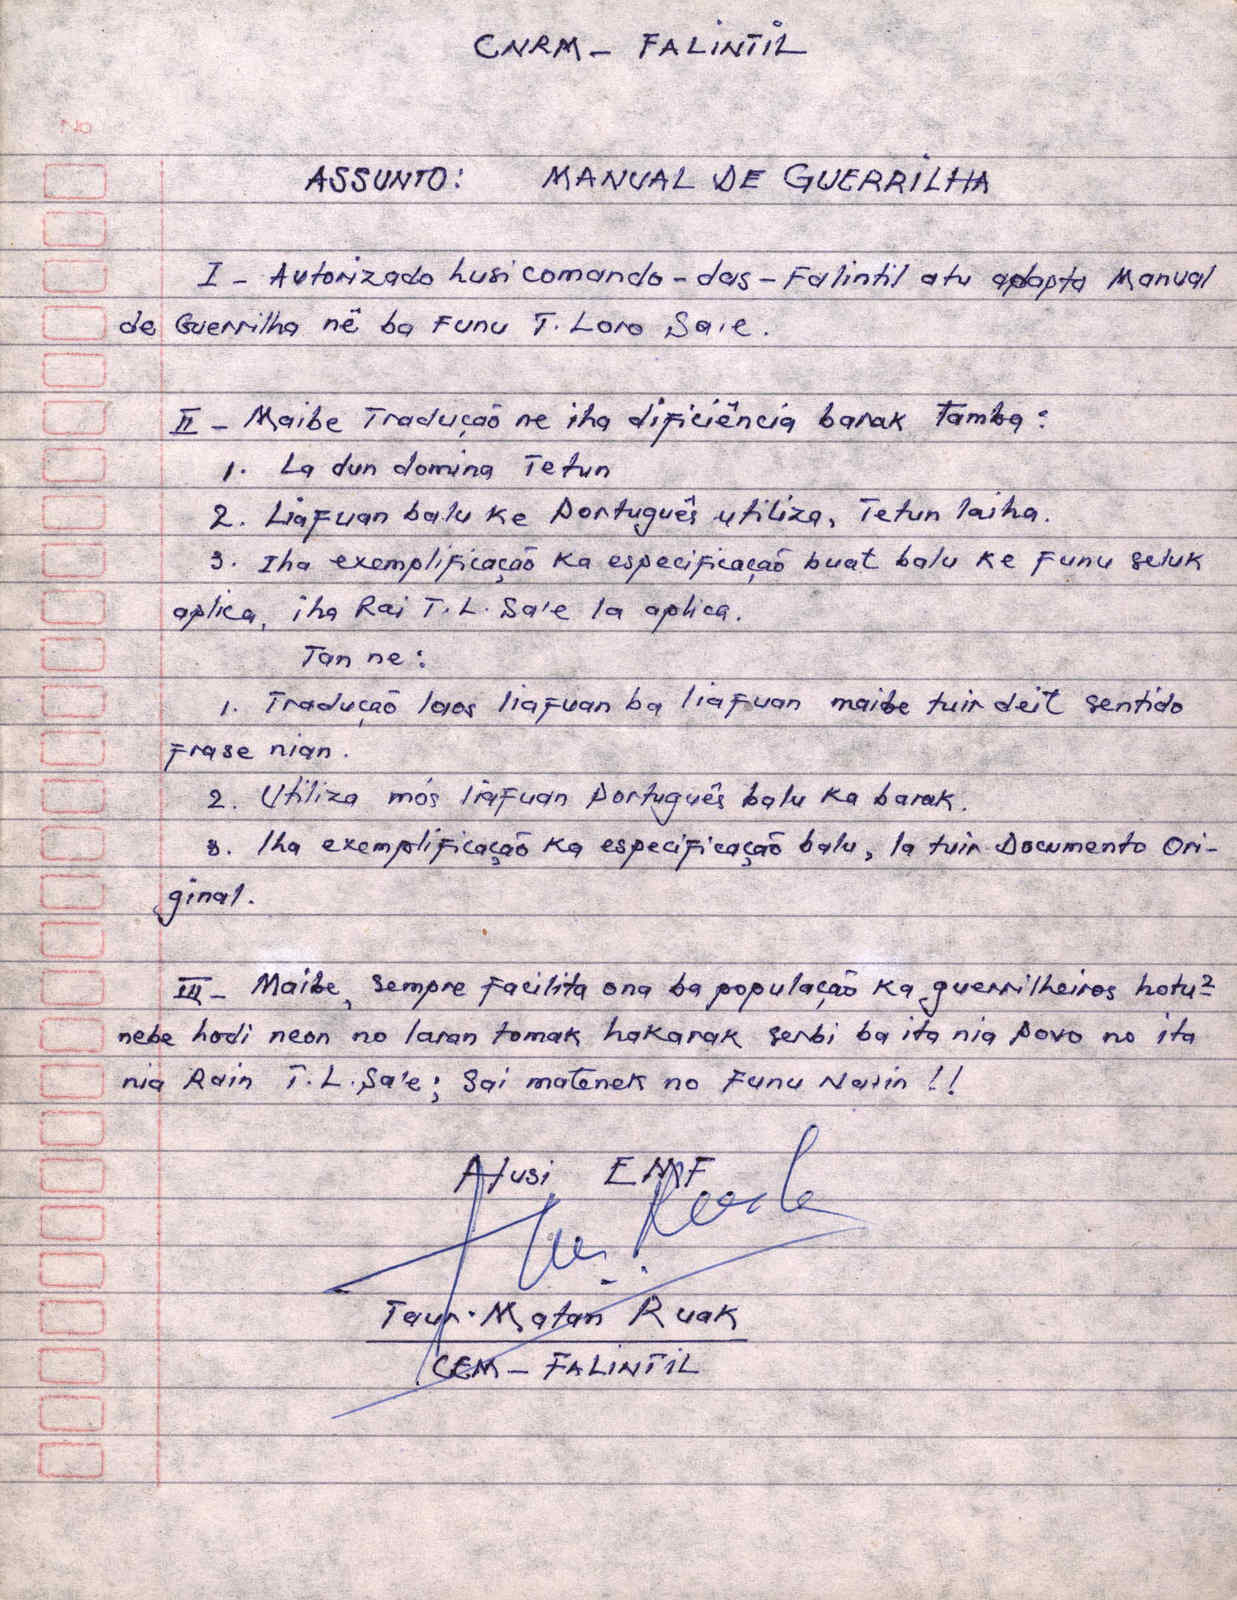 CNRM - FALINTIL
No
ASSUNTO: MANUAL DE GUERRILHA
I - Autorizado husi comando-das-Falintil atu adopta Manual
de Guerrilha nê ba Funu T. Loro Sa'e.
II - Maibe Tradução ne iha dificiência barak Tamba:
1. La dun domina Tetun
2. Liafuan balu ke Português utiliza, Tetun laiha.
3. Iha exemplificação ka especificação buat balu ke Funu seluk
aplica, iha Rai T.L. Sa'e la aplica.
Tan ne:
1. Tradução laos liafuan ba liafuan maibe tuir deit sentido
frase nian.
2. Utiliza mós liafuan Português balu ka barak.
3. Iha exemplificação ka especificação balu, la tuir Documento Ori-
ginal.
III - Maibe, sempre facilita ona ba população ka guerrilheiros hotu²
nebe hodi neon no laran tomak hakarak serbi ba ita nia Povo no ita
nia Rain T.L. Sa'e; Sai matenek no Funu Nain!!
Husi EMF
Taur Matan Ruak
CEM - FALINTIL